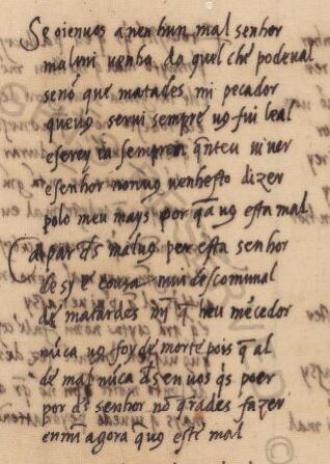 Se oienuos a nen hun mal senhor
mal mi uenha da quel che pode ual
senō que matades mi pecador
queuꝯ serui sempre uꝯ fui leal
eserey ia sempren q̄nteu uiuer
esenhor nonuꝯ uenhesto dizer
polo meu mays por q̄a uꝯ esta mal
Ca par ds̄ maluꝯ per esta senhor
de sy e cousa mui descomunal
de matardes mī q̄ heu mēcedor
nūca uꝯ foy de morte pois q̄ al
de mal nūca ds̄ en uos q̄s poer
por ds̄ senhor nō q̄rades fazer
enmi agora q̄ uꝯ este mal